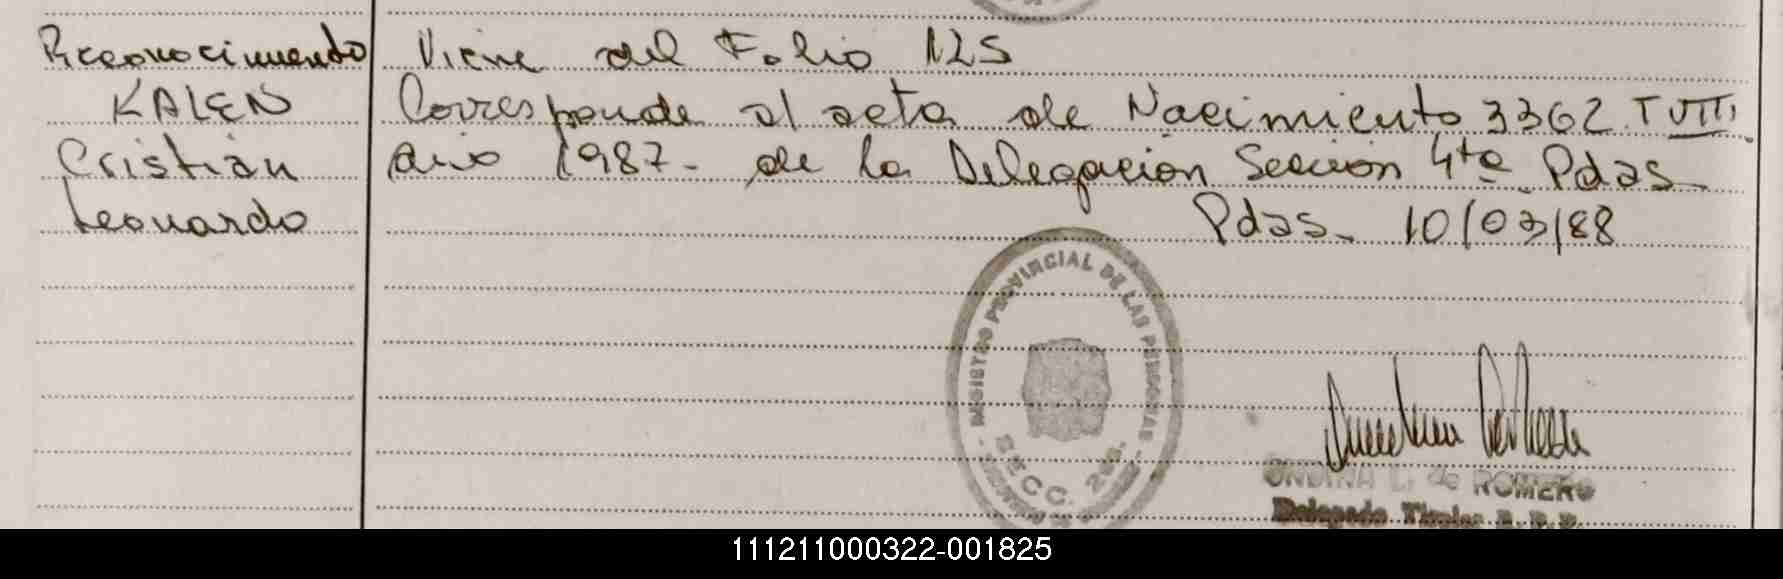 Reconocimiento
KALEN
Cristian
Leonardo
Viene del Folio 125
Corresponde al acta de Nacimiento 3362 T VIII
año 1987- de la Delegación Sección 4ta Pdas-
Pdas- 10/03/88
REGISTRO PROVINCIAL DE LAS PERSONAS
SECC. 2da.
ONDINA L. de ROMERO
Delegada Titular R. P. P.
111211000322-001825